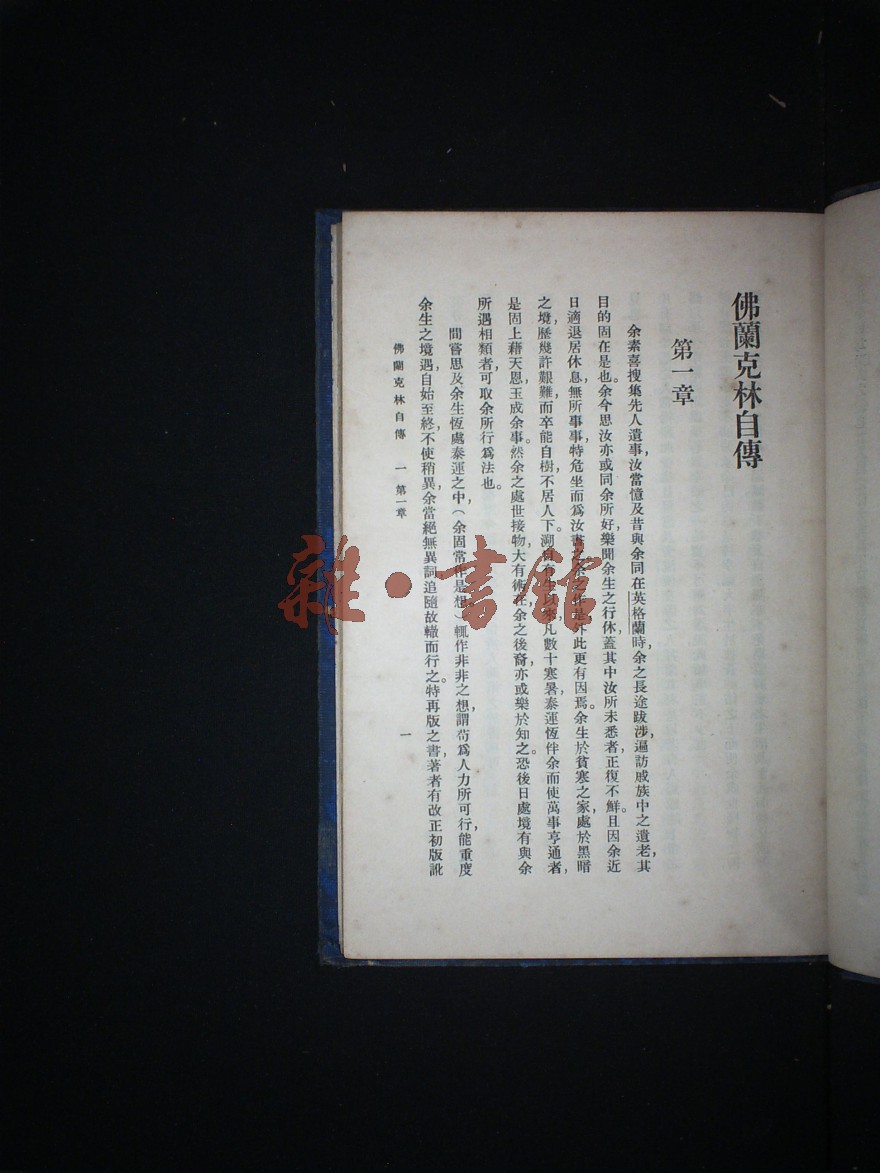 佛蘭克林自傳
第一章
余素喜搜集先人遺事，汝當憶及昔與余同在英格蘭時，余之長途跋涉，遍訪戚族中之遺老，其
目的固在是也。余今思汝亦或同余所好，樂聞余生之行休，蓋其中汝所未悉者，正復不鮮。且因余近
日適退居休息，無所事事，特危坐而爲汝書之。余之作是，外此更有因焉。余生於貧寒之家，處於黑暗
之境，歷幾許艱難，而卒能自樹，不居人下。溯自有生以來，凡數十寒暑，泰運恆伴余而使萬事亨通者，
是固上藉天恩，玉成余事。然余之處世接物，大有術在，余之後裔，亦或樂於知之。恐後日處境有與余
所遇相類者，可取余所行爲法也。
間嘗思及余生恆處泰運之中，（余固常作是想，）輒作非非之想，謂苟爲人力所可行，能重度
余生之境遇，自始至終，不使稍異，余當絕無異詞，追隨故轍而行之。特再版之書，著者有改正初版訛
佛蘭克林自傳 一 第一章
一
雜·書館